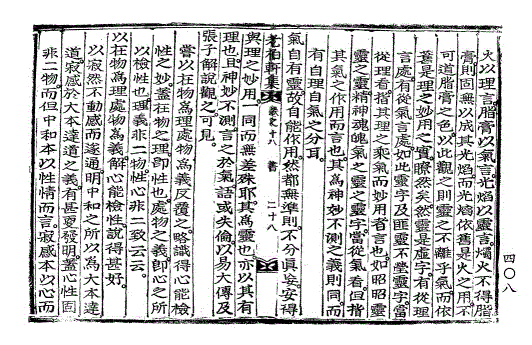 火以理言脂膏以氣言光焰以靈言燭火不得脂
膏則固無以成其光焰而光焰依舊是火之用不
可道脂膏之色以此觀之則靈之不離乎氣而依
舊是理之妙用之實瞭然矣然靈是虛字有從理
言處有從氣言處如此靈字及匪靈不瑩靈字當
從理看指其理之乘氣而妙用者言也如昭昭靈
靈之靈精神魂魄氣之靈之靈字當從氣看但指
其氣之作用而言也其爲神妙不測之義則同而
有自理自氣之分耳
氣自有靈故自能作用然都無準則不分眞妄安得
與理之妙用一同而無差殊耶其爲靈也亦以其有
理也且神妙不測言之於氣語或失倫以易大傳及
張子解說觀之可見
嘗以在物爲理處物爲義反覆之略識得心能檢
性之妙蓋在物之理卽性也處物之義卽心之所
以檢性也理義非二物性心非二致云云
以在物爲理處物爲義解心能檢性說得甚好
以寂然不動感而遂通明中和之所以爲大本達
道寂感於大本達道之義有甚更發明蓋心性固
非二物而但中和本以性情而言寂感本以心而
老柏軒集
卷之十八 書 二十八
四〇八